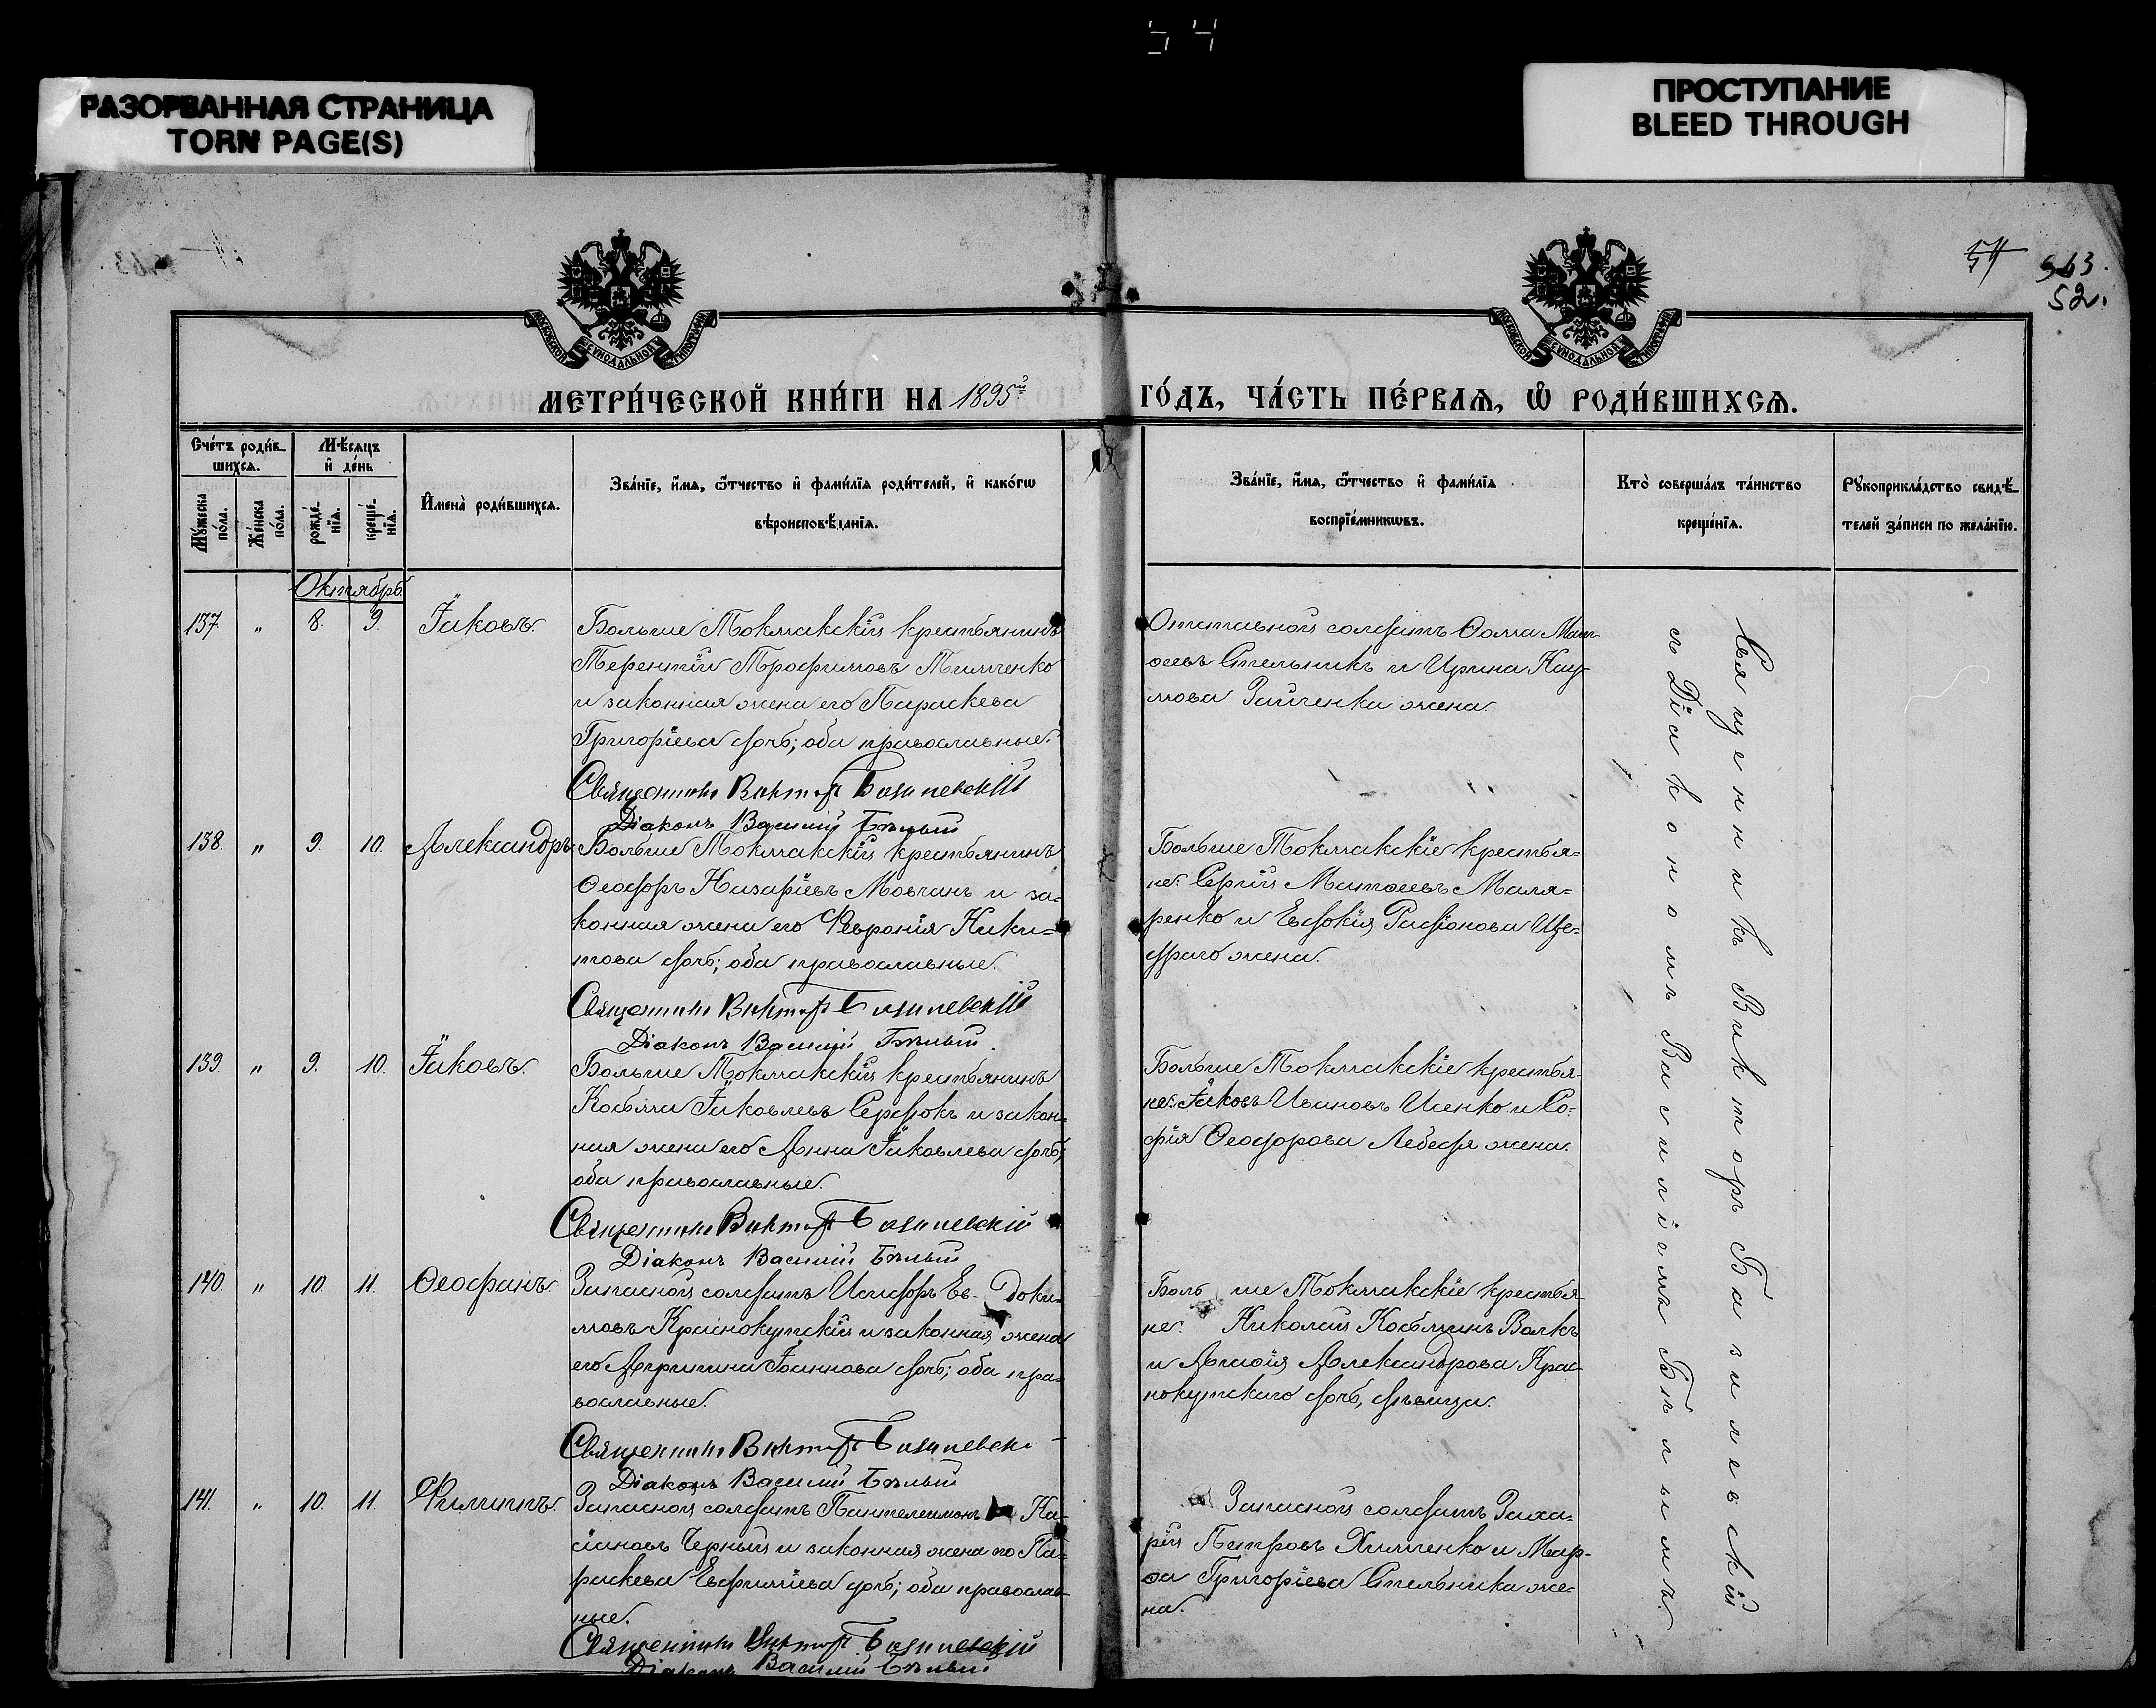 54
РАЗОРВАННАЯ СТРАНИЦА
TORN PAGE(S)
ПРОСТУПАНИЕ
BLEED THROUGH
54
543.
52.
МОСКОВСКОЙ СѴНОДАЛЬНОЙ ТИПОГРАФІИ
МОСКОВСКОЙ СѴНОДАЛЬНОЙ ТИПОГРАФІИ
МЕТРИ́ЧЕСКОЙ КНИ́ГИ НА 1895й
ГО́ДЪ, ЧА́СТЬ ПЕ́РВАѦ, Ѡ РОДИ́ВШИХСѦ.
Сче́тъ роди́в-
шихсѧ.
Мꙋ́жеска по́ла.
Же́нска по́ла.
Мѣ́сѧцъ
и҆ де́нь
рожде́нїѧ.
креще́нїѧ.
И҆мена̀ роди́вшихсѧ.
Зва́нїе, и҆́мѧ, ѻ҆́тчество и҆ фами́лїѧ роди́телей, и҆ како́гѡ
вѣроисповѣ́данїѧ.
Зва́нїе, и҆́мѧ, ѻ҆́тчество и҆ фами́лїѧ
воспрїе́мникѡвъ.
Кто̀ соверша́лъ та́инство
креще́нїѧ.
Рꙋкоприкла́дство свидѣ́-
телей за́писи по жела́нїю.
Октябрь
137. " 8. 9. Іаковъ.
Больше Токмакскій крестьянинъ
Терентій Трофимовъ Тимченко
и законная жена его Параскева
Григоріева дочь; оба православные.
Священникъ Викторъ Базилевскій
Діаконъ Василій Бѣлый
Отставной солдатъ Ѳома Мат-
ѳеевъ Стельникъ и Ирина Нау-
мова Зайченка жена.
138. " 9. 10. Александръ
Больше Токмакскій крестьянинъ
Ѳеодоръ Назаріевъ Мовчанъ и за-
конная жена его Февронія Ники-
това дочь; оба православные.
Священникъ Викторъ Базилевскій
Діаконъ Василій Бѣлый.
Больше Токмакскіе крестья-
не: Сергій Матѳеевъ Маля-
ренко и Евдокія Родіонова
жена.
139. " 9. 10. Іаковъ.
Больше Токмакскій крестьянинъ
Косьма Іаковлевъ Сердюкъ и закон-
ная жена его Анна Іаковлева дочь;
оба православные.
Священникъ Викторъ Базилевскій
Діаконъ Василій Бѣлый
Больше Токмакскіе крестья-
не: Іаковъ Ивановъ Исенко и Со-
фія Ѳеодорова Лебедя жена.
140. " 10. 11. Ѳеофанъ.
Запасной солдатъ Исидоръ Ев-доки-
мовъ Краснокутскій и законная жена
его Агрипина Іоаннова дочь; оба пра-
вославные.
Священникъ Викторъ Базилевскі
Діаконъ Василій Бѣлый
Боль ше Токмакскіе крестья-
не: Николай Косьминъ Волкъ
и Агаѳія Александрова Крас-
нокутскаго дочь, дѣвица.
141. " 10. 11. Филиппъ.
Запасной солдатъ Пантелеимонъ Ка-
сіановъ Черный и законная жена его Па-
раскева Евфиміева дочь; оба православ-
ные.
Священникъ Викторъ Базилевскій
Діаконъ Василій Бѣлый
Запасной солдатъ Заха-
рій Петровъ Химченко и Мар-
ѳа Григоріева Стельника же-
на.
Священникъ Викторъ Базилевскій
съ Діакономъ Василіемъ Бѣлымъ.